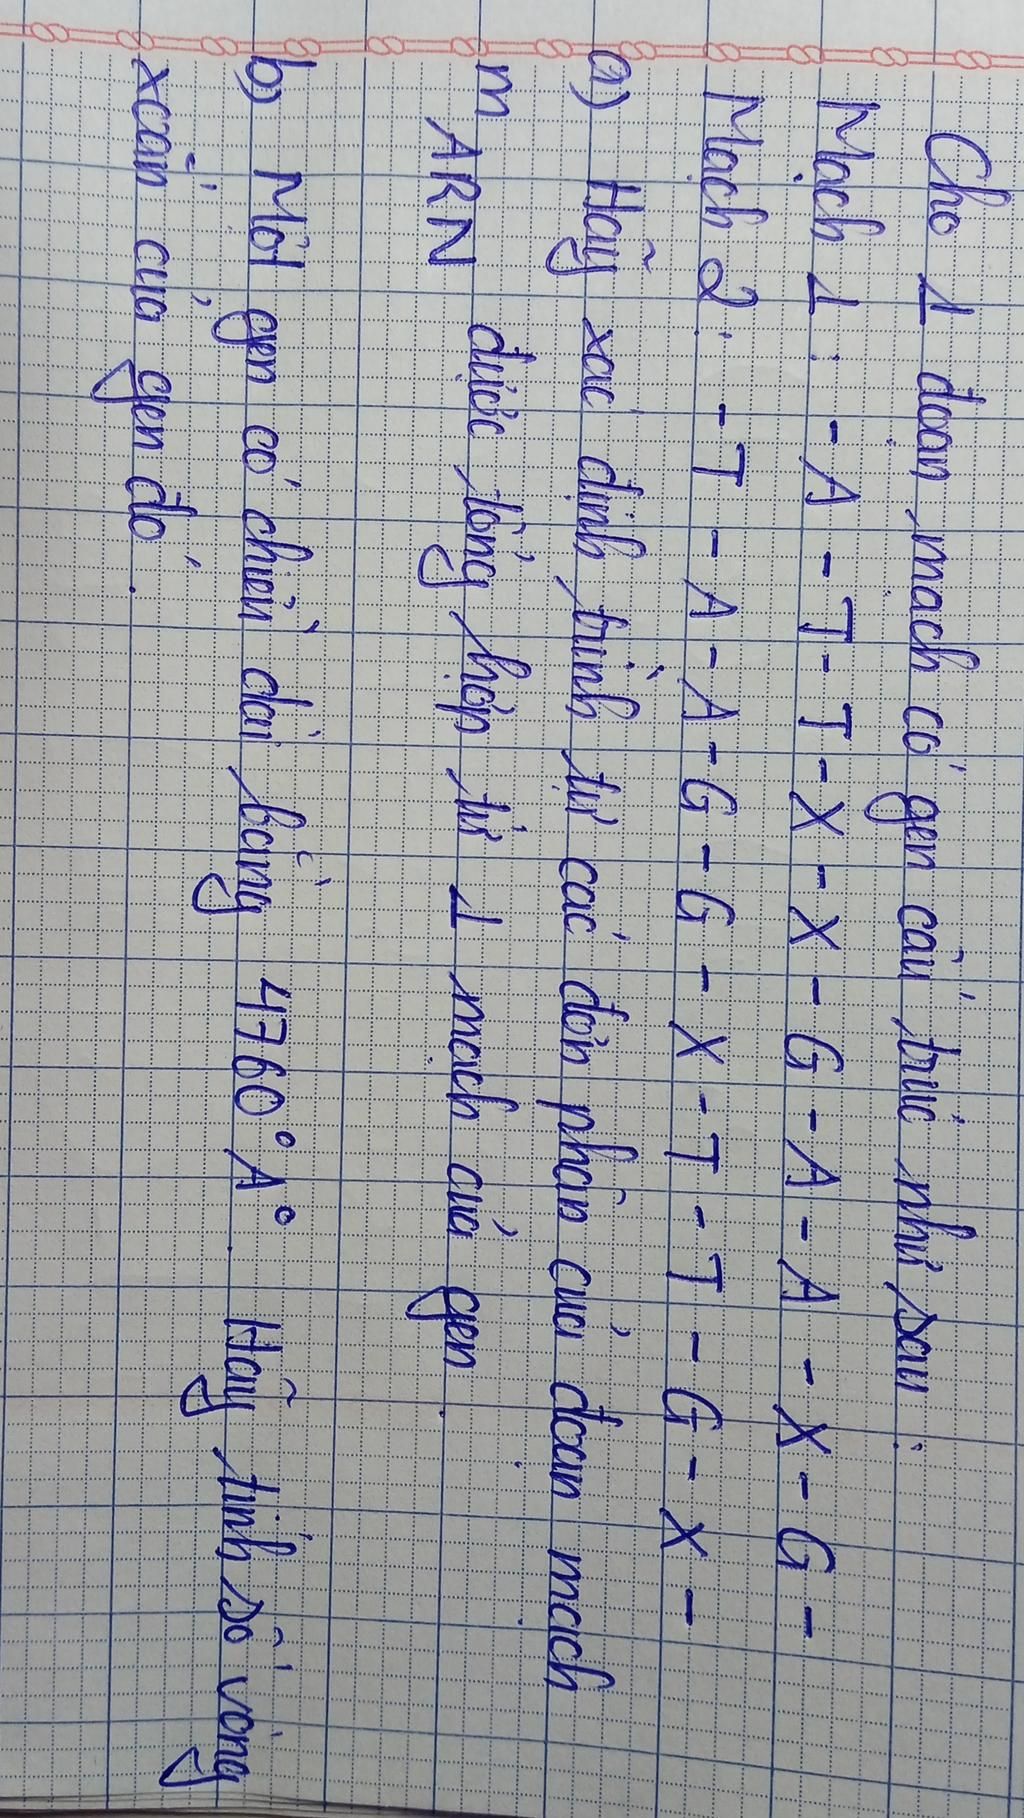 Cho 1 đoạn mạch có gen cấu trúc như sau:
Mạch 1: - A - T - T - X - X - G - A - A - X - G -
Mạch 2: - T - A - A - G - G - X - T - T - G - X -
a) Hãy xác định trình tự các đơn phân của đoạn mạch
m ARN được tổng hợp từ 1 mạch của gen.
b) Một gen có chiều dài bằng 4760°A°. Hãy tính số vòng
xoắn của gen đó.